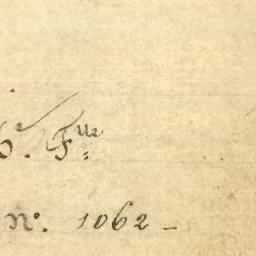 6.e F.lle
n.o 1062 -